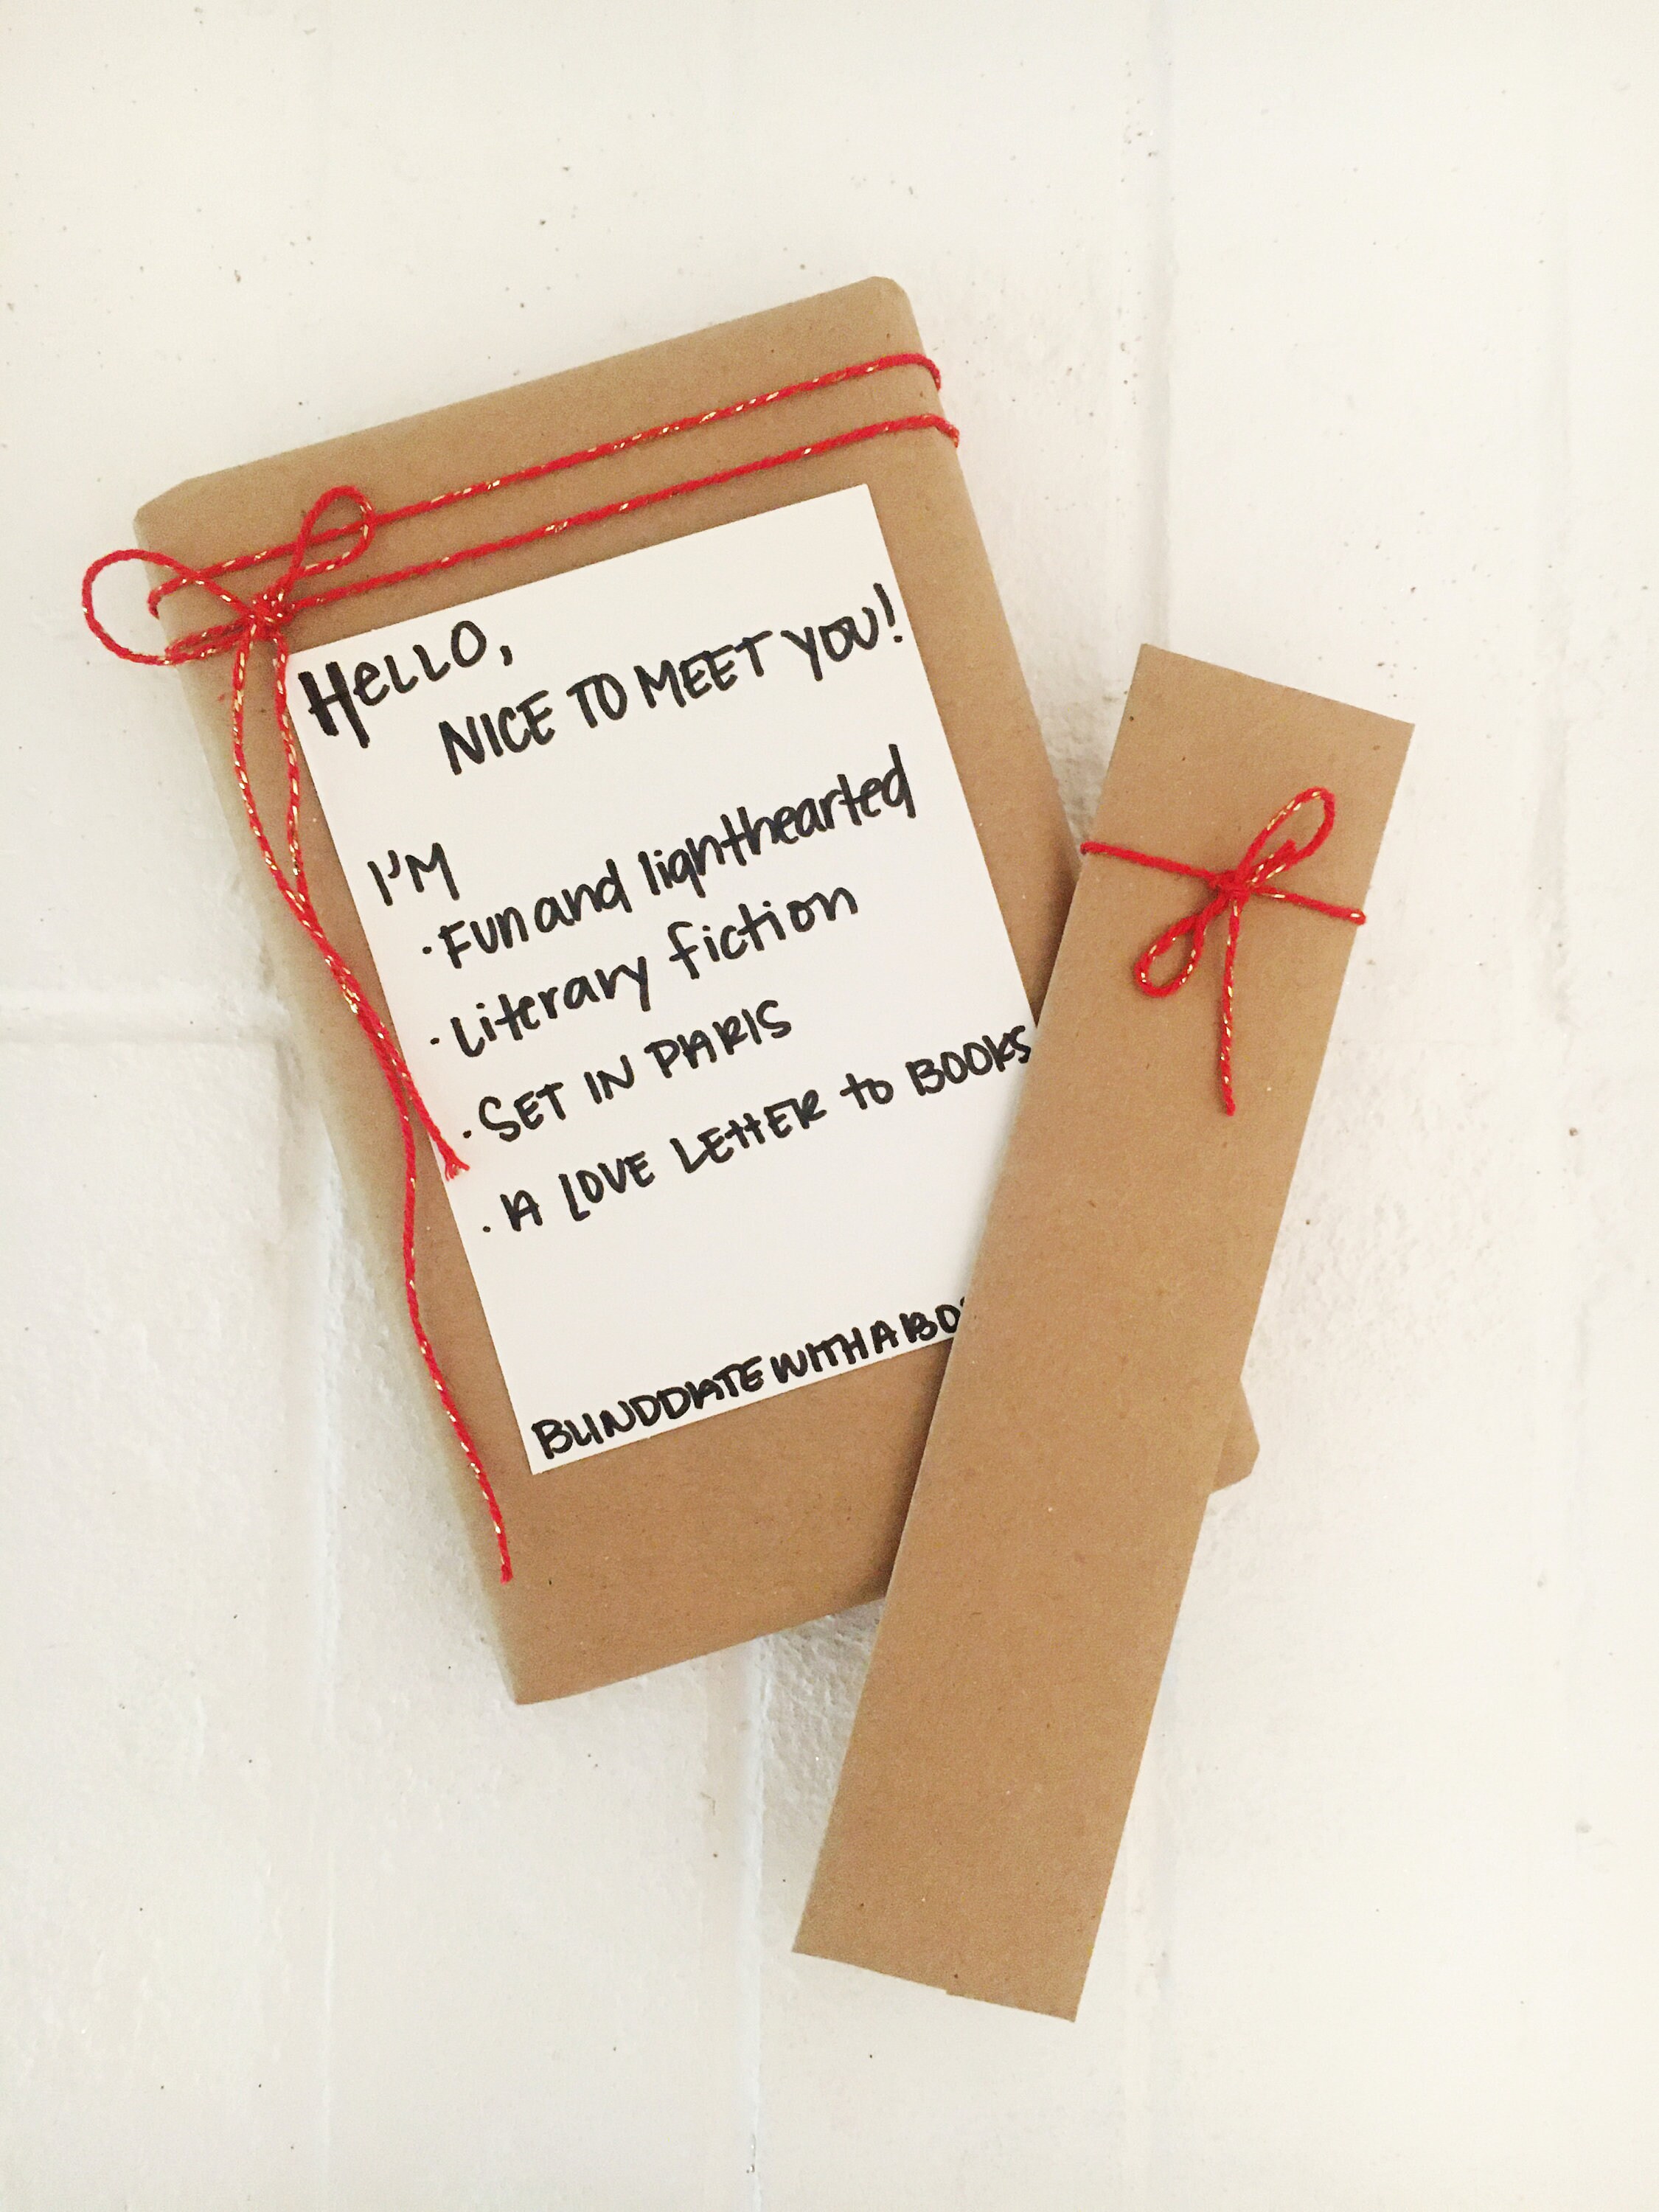 Hello,
NICE TO MEET YOU!
I'M
· Fun and lighthearted
· Literary fiction
· SET IN PARIS
· A LOVE LETTER to BOOKS
BLINDDATEWITHABO